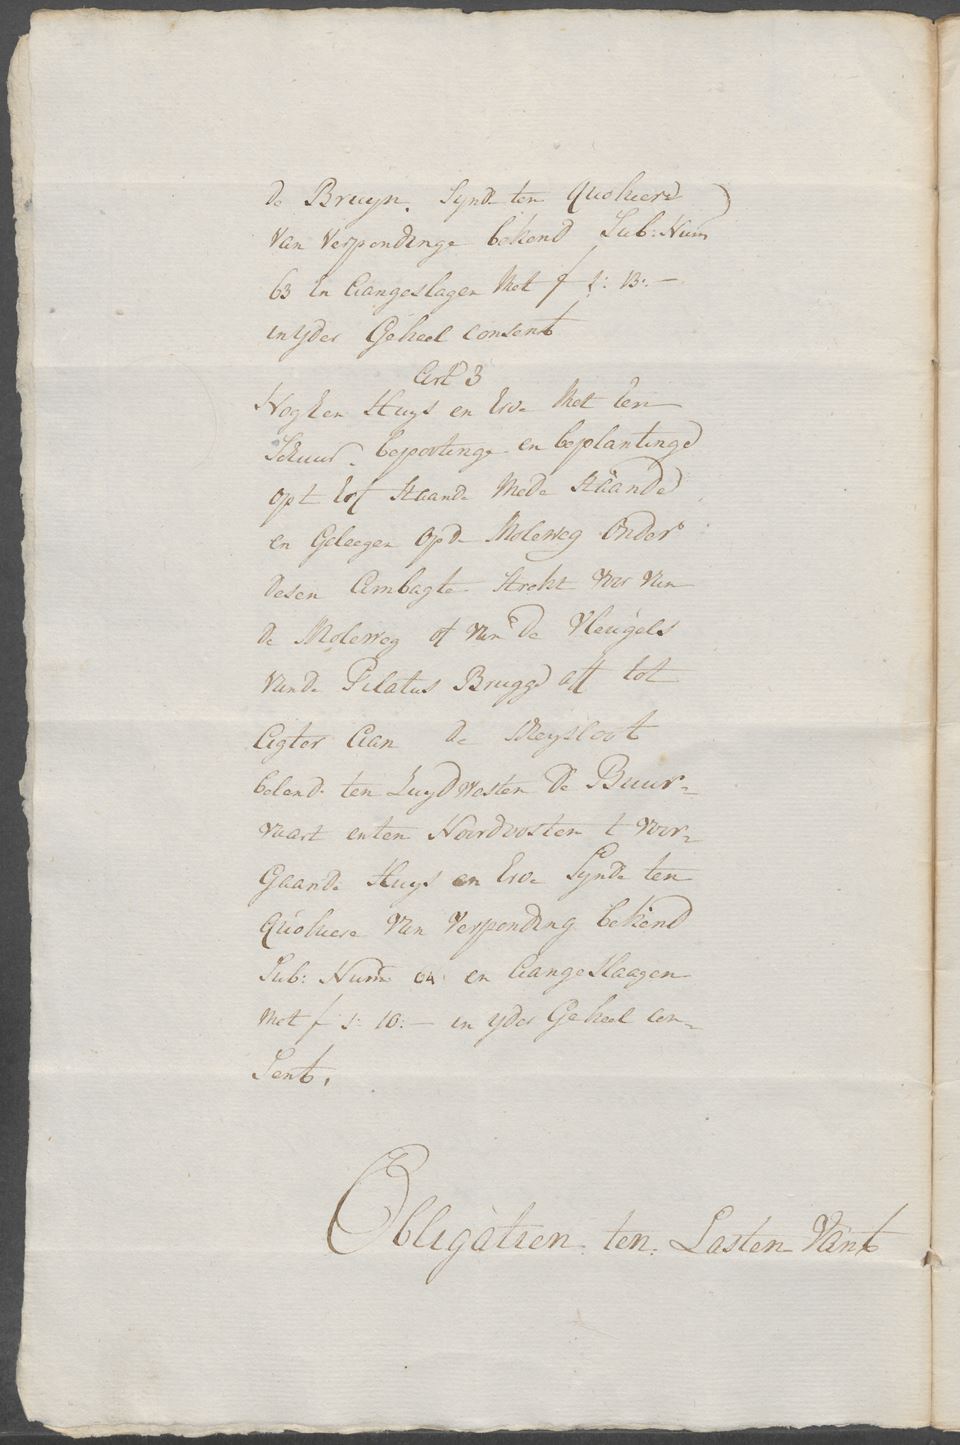 de Bruyn. Synde ten Quohiere
van Verpondinge bekend Sub: Num
63 en Aangeslagen Met f 1: 13: —
in yder Geheel consent
Art 3
Nog Een Huys en Erve Met Een
Schuur. bepotinge en beplantinge
op t Erf Staande Mede Staande
en Geleegen op de Moleweg Onder
desen Ambagte Strekt voor van
de Moleweg of van de Vleugels
vande Pilatus Brugge aff tot
Agter Aan de Meysloot
belend ten Zuydwesten de Buur-
vaart en ten Noordoosten t voor-
Gaande Huys en Erve Synde ten
Quohiere van Verponding bekend
Sub: Num 64 en Aangeslaagen
Met f 1: 10: — in yder Geheel con-
Sent.
Obligatien ten Lasten van t